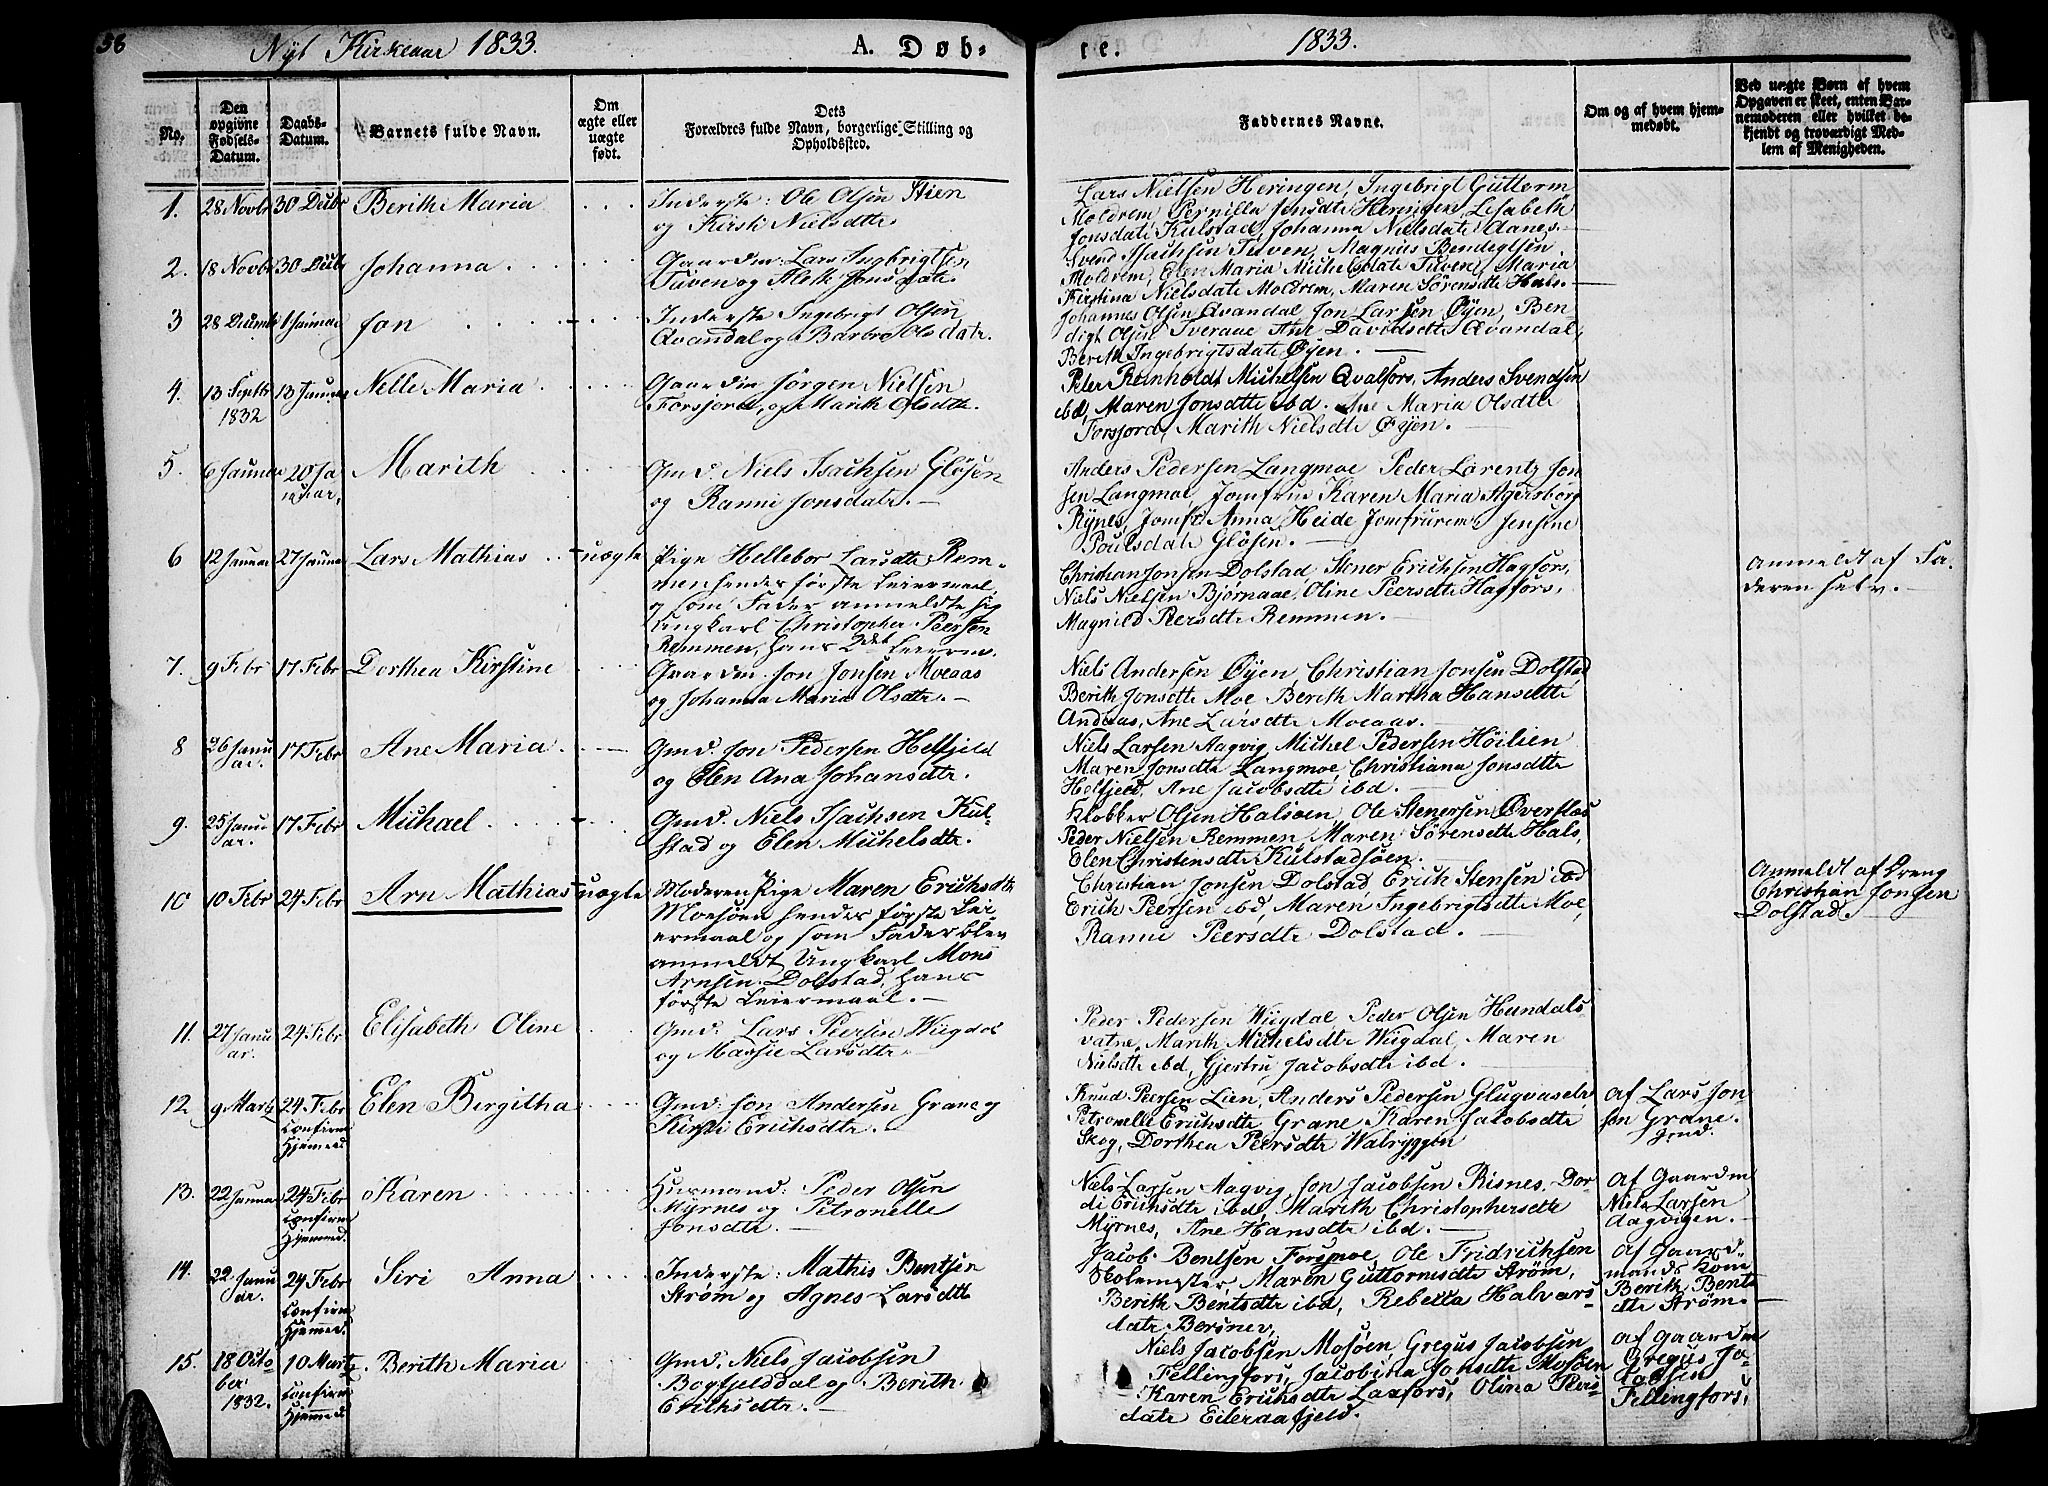 58
Nyt Kirkeaar 1833.
A. Døb-
te.
1833.
No.
Den opgivne Fødsels-Datum.
Daabs-Datum.
Barnets fulde Navn.
Om ægte eller uægte født.
Dets Forældres fulde Navn, borgerlige Stilling og Opholdssted.
Faddernes Navne.
Om og af hvem hjem-medøbt.
Ved uægte Børn af hvem Opgaven er skeet, enten Bar-nemoderen eller hvilket be-kjendt og troværdigt Med-lem af Menigheden.
1. 28 Novbr 30 Decbr Berith Maria
Inderste: Ole Olsen Stien
og Kirsti Nielsdtr
Lars Nielsen Heringen, Ingebrigt Guttorm
Moldrem, Pernilla Jonsdtr Heringen, Lisabeth
Jonsdatr Kulstad, Johanna Nielsdatr Aanes.
2. 18 Novbr 30 Decbr Johanna
Gaardm: Lars Ingbrigtsen
Tuven og Aleth Jonsdatr.
Svend Isachsen Tuven, Magnus Bendegtsen
Moldrem, Elen Maria Michelsdatr Tuven, Maria
Kirstina Nielsdatr Moldrem, Maren Sørensdtr Hals.
3 28 Decembr 1 Januar Jon
Inderste Ingebrigt Olsen
Qvandal og Barbro Olsdatr.
Johannes Olsen Qvandal, Jon Larsen Øyen, Ben-
digt Olsen Sveraae, Ane Davidsdtr Qvandal,
Berith Ingebrigtsdatr Øyen.
4. 13 Septbr 1832 13 Januar Nelle Maria
Gaardm Jørgen Nielsen
Forsjord, og Marith Olsdtr.
Peter Reinholdt Michelsen Qvalfors, Anders Svendsen
ibd, Maren Jonsdtr ibd. Ane Maria Olsdtr
Forsjord, Marith Nielsdtr Øyen.
5. 6 Januar 20 Januar, Marith
Gmd. Niels Isachsen Gløsen
og Ranni Jonsdatr.
Anders Pedersen Langmoe Peder Lorentz Jon
sen Langmoe, Jomfrue Karen Maria Agersborg
Rynes, Jomfr. Anna Heide Jensine
Poulsdatr Gløsen.
6 12 Januar 27 Januar Lars Mathias uægte
Pige Hellebor Larsdtr Rem-
men hendes første Leiermaal,
og som Fader anmeldte sig
Ungkarl Christopher Peersen
Remmen, hans 2det Leierm.
Christian Jonsen Dolstad Stener Erichsen Hagfors,
Niels Nielsen Bjørnaae, Oline Peersdtr Hagfors,
Magnild Peersdtr Remmen.
Anmeldt af Fa-
deren selv.
7. 9 Febr 17 Febr Dorthea Kirstine
Gaardm. Jon Jonsen Moeaas
og Johanna Maria Olsdtr.
Niels Andersen Øyen, Christian Jonsen Dolstad
Berith Jonsdtr Moe Berith Martha Hansdtr
Andaas, Ane Larsdtr Moeaas.
8 26 Januar. 17 Febr Ane Maria.
Gmd. Jon Pedersen Helfjeld
og Elen Ana Johansdtr.
Niels Larsen Aagvig, Michel Pedersen Høilien,
Maren Jonsdtr Langmoe, Christiana Jonsdtr
Helfjeld, Ane Jacobsdtr ibd.
9. 25 Januar. 17 Febr Michael
Gmd. Niels Isachsen Kul-
stad og Elen Michelsdtr.
Klokker Olsen Halsøen, Ole Stenersen Øverflaes
Peder Nielsen Remmen, Maren Sørensdtr Hals,
Elen Christensdtr Kulstadsøen.
10 10 Febr 24 Febr Arn Mathias uægte
Moderen Pige Maren Erichsdtr
Moesøen hendes første Lei-
ermaal og som Fader blev
anmeldt Ungkarl Mons
Arnsen Dolstad, hans
første Leiermaal.
Christian Jonsen Dolstad, Erich Stensen ibd
Erich Peersen ibd, Maren Ingebrigtsdtr Moe,
Ranni Peersdtr Dolstad.
Anmeldt af Dreng
Christian Jonsen
Dolstad.
11. 27 Januar. 24 Febr Elisabeth Oline
Gmd: Lars Peersen Wiigdal
og Marsie Larsdtr
Peder Pedersen Wiigdal Peder Olsen Hundals-
vatne, Marith Michelsdtr Wiigdal, Maren
Nielsdtr ibd, Gjertru Jacobsdtr ibd.
12. 9 Marts 24 Febr Confirm Hjemmed. Elen Bergitha
Gmd: Jon Andersen Grane og
Kirsti Erichsdtr.
Knud Peersen Lien, Anders Pedersen Glugvasele
Petronelle Erichsdtr, Grane Karen Jacobsdtr
Skog, Dorthea Peersdtr Walryggen
af Lars Jon-
sen Grane.
gmd.
13. 22 Januar 24 Febr Confirm Hjemmed. Karen
Huusmand: Peder Olsen
Myrnes og Petronelle
Jonsdtr.
Niels Larsen Aagvig, Jon Jacobsen Risnes, Dor-
di Erichsdtr ibd, Marith Christophersdtr
Myrnes, Ane Hansdtr ibd.
af Gaardm
Niels Larsen
Aagvigen.
14. 22 Januar. 24 Febr Confirm Hjemmed. Siri Anna
Inderste: Mathis Bentsen
Strøm og Agnes Larsdtr
Jacob Bentsen Forsmoe, Ole Fridrichsen
Skolemester, Maren Guttormsdtr Strøm,
Berith Bentsdtr ibd, Rebecca Halvars-
datr Bersnev,
Af Gaard-
mands Kone
Berith Bents
dtr Strøm.
15. 18 October 1832. 10 Marts Confirm Hjemmed. Berith Maria
Gmd. Niels Jacobsen
Bogfjelddal og Berith
Erichsdtr.
Niels Jacobsen Mosøen, Gregus Jacobsen
Fellingfors, Jacobina Jonsdtr Mosøen
Karen Erichsdtr Laxfors, Olina Peers-
datr Eileraafjeld.
af Gaardm
Gregus Ja-
cobsen
Fellingfors,